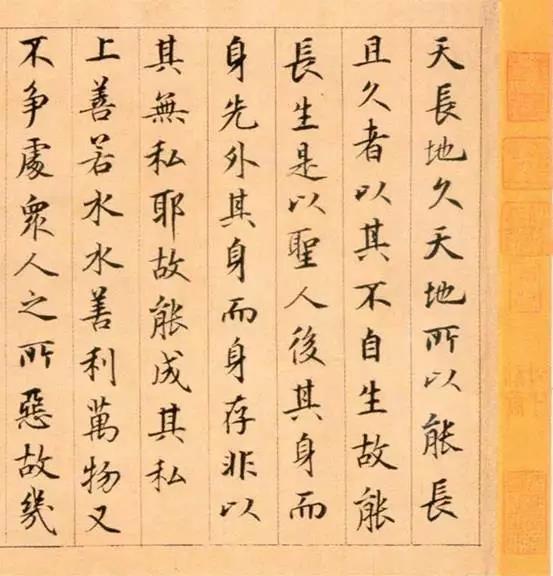 天長地久天地所以能長
且久者以其不自生故能
長生是以聖人後其身而
身先外其身而身存非以
其無私耶故能成其私
上善若水水善利萬物又
不争處衆人之所惡故幾